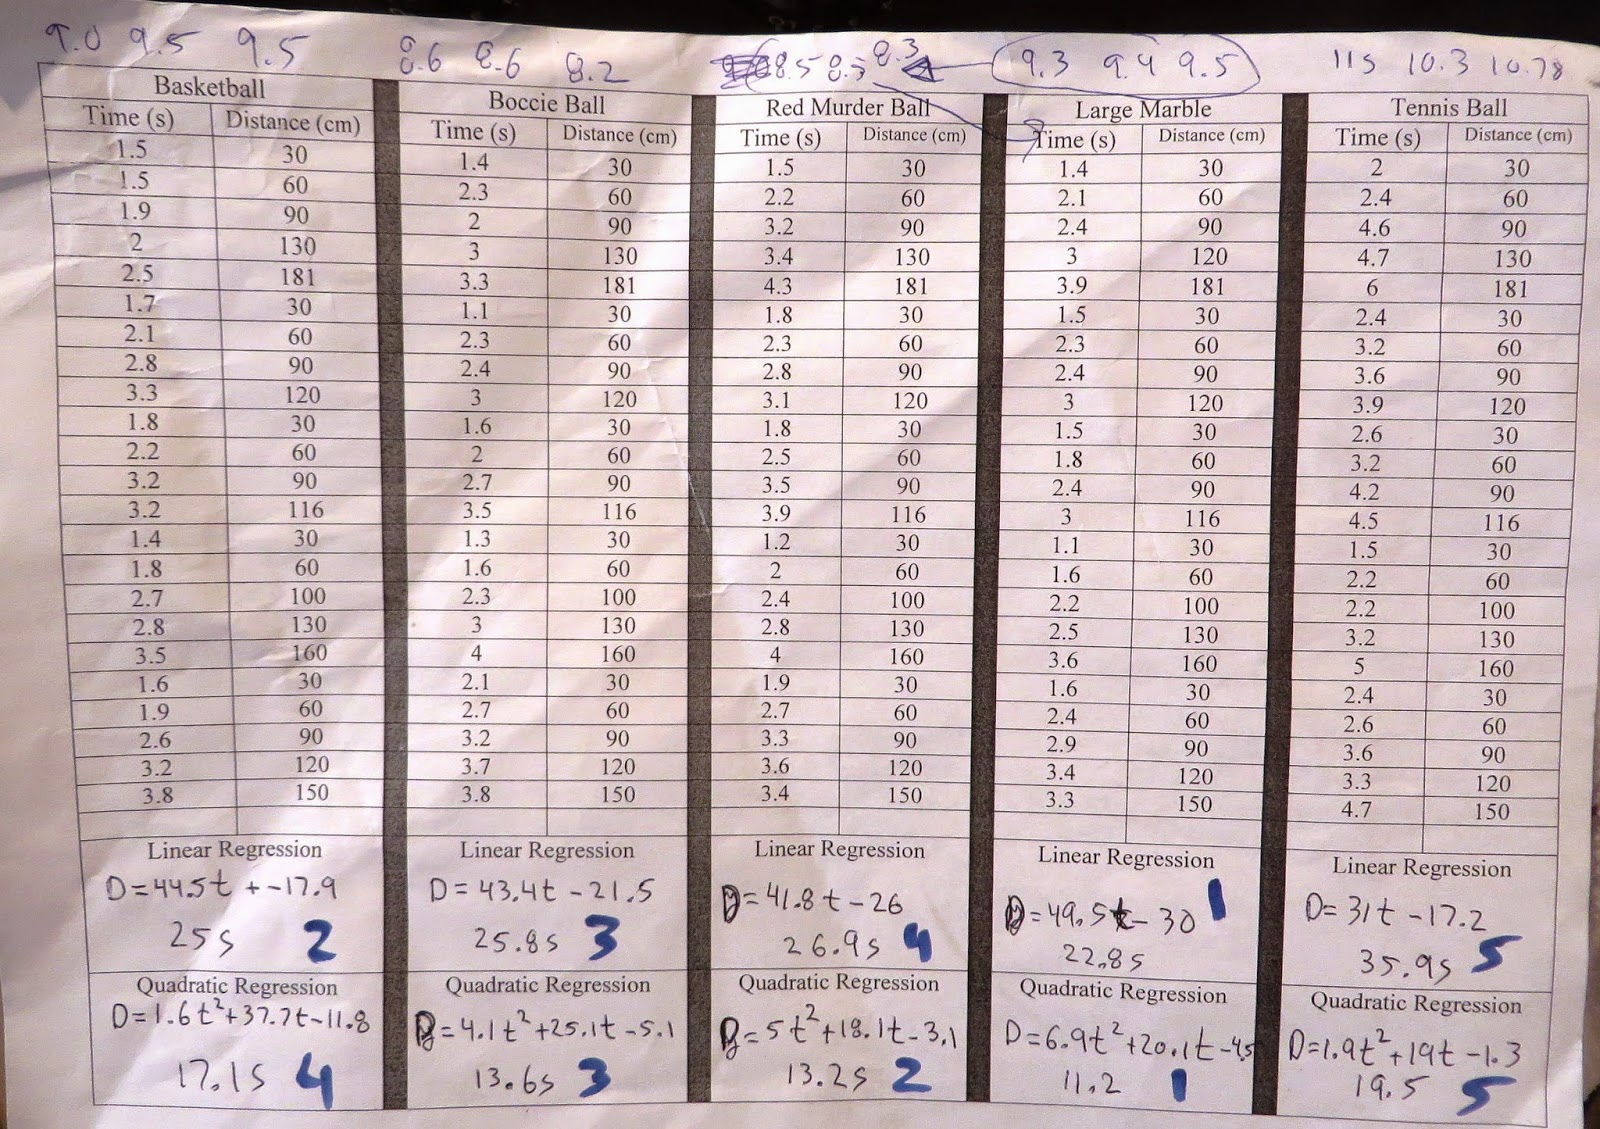 9.0 9.5 9.5 8.6 8.6 8.2 8.5 8.5 8.3 9.3 9.4 9.5 11s 10.3 10.78
Basketball Boccie Ball Red Murder Ball Large Marble Tennis Ball
Time (s) Distance (cm) Time (s) Distance (cm) Time (s) Distance (cm) Time (s) Distance (cm) Time (s) Distance (cm)
1.5 30 1.4 30 1.5 30 1.4 30 2 30
1.5 60 2.3 60 2.2 60 2.1 60 2.4 60
1.9 90 2 90 3.2 90 2.4 90 4.6 90
2 130 3 130 3.4 130 3 120 4.7 130
2.5 181 3.3 181 4.3 181 3.9 181 6 181
1.7 30 1.1 30 1.8 30 1.5 30 2.4 30
2.1 60 2.3 60 2.3 60 2.3 60 3.2 60
2.8 90 2.4 90 2.8 90 2.4 90 3.6 90
3.3 120 3 120 3.1 120 3 120 3.9 120
1.8 30 1.6 30 1.8 30 1.5 30 2.6 30
2.2 60 2 60 2.5 60 1.8 60 3.2 60
3.2 90 2.7 90 3.5 90 2.4 90 4.2 90
3.2 116 3.5 116 3.9 116 3 116 4.5 116
1.4 30 1.3 30 1.2 30 1.1 30 1.5 30
1.8 60 1.6 60 2 60 1.6 60 2.2 60
2.7 100 2.3 100 2.4 100 2.2 100 2.2 100
2.8 130 3 130 2.8 130 2.5 130 3.2 130
3.5 160 4 160 4 160 3.6 160 5 160
1.6 30 2.1 30 1.9 30 1.6 30 2.4 30
1.9 60 2.7 60 2.7 60 2.4 60 2.6 60
2.6 90 3.2 90 3.3 90 2.9 90 3.6 90
3.2 120 3.7 120 3.6 120 3.4 120 3.3 120
3.8 150 3.8 150 3.4 150 3.3 150 4.7 150
Linear Regression Linear Regression Linear Regression Linear Regression Linear Regression
D=44.5t + -17.9 D=43.4t -21.5 D=41.8t -26 D=49.5t -30 1 D=31t -17.2
25s 2 25.8s 3 26.9s 4 22.8s 35.9s 5
Quadratic Regression Quadratic Regression Quadratic Regression Quadratic Regression Quadratic Regression
D=1.6t²+37.7t-11.8 D=4.1t²+25.1t-5.1 D=5t²+18.1t-3.1 D=6.9t²+20.1t-4.5 D=1.9t²+19t-1.3
17.1s 4 13.6s 3 13.2s 2 11.2 1 19.5 5